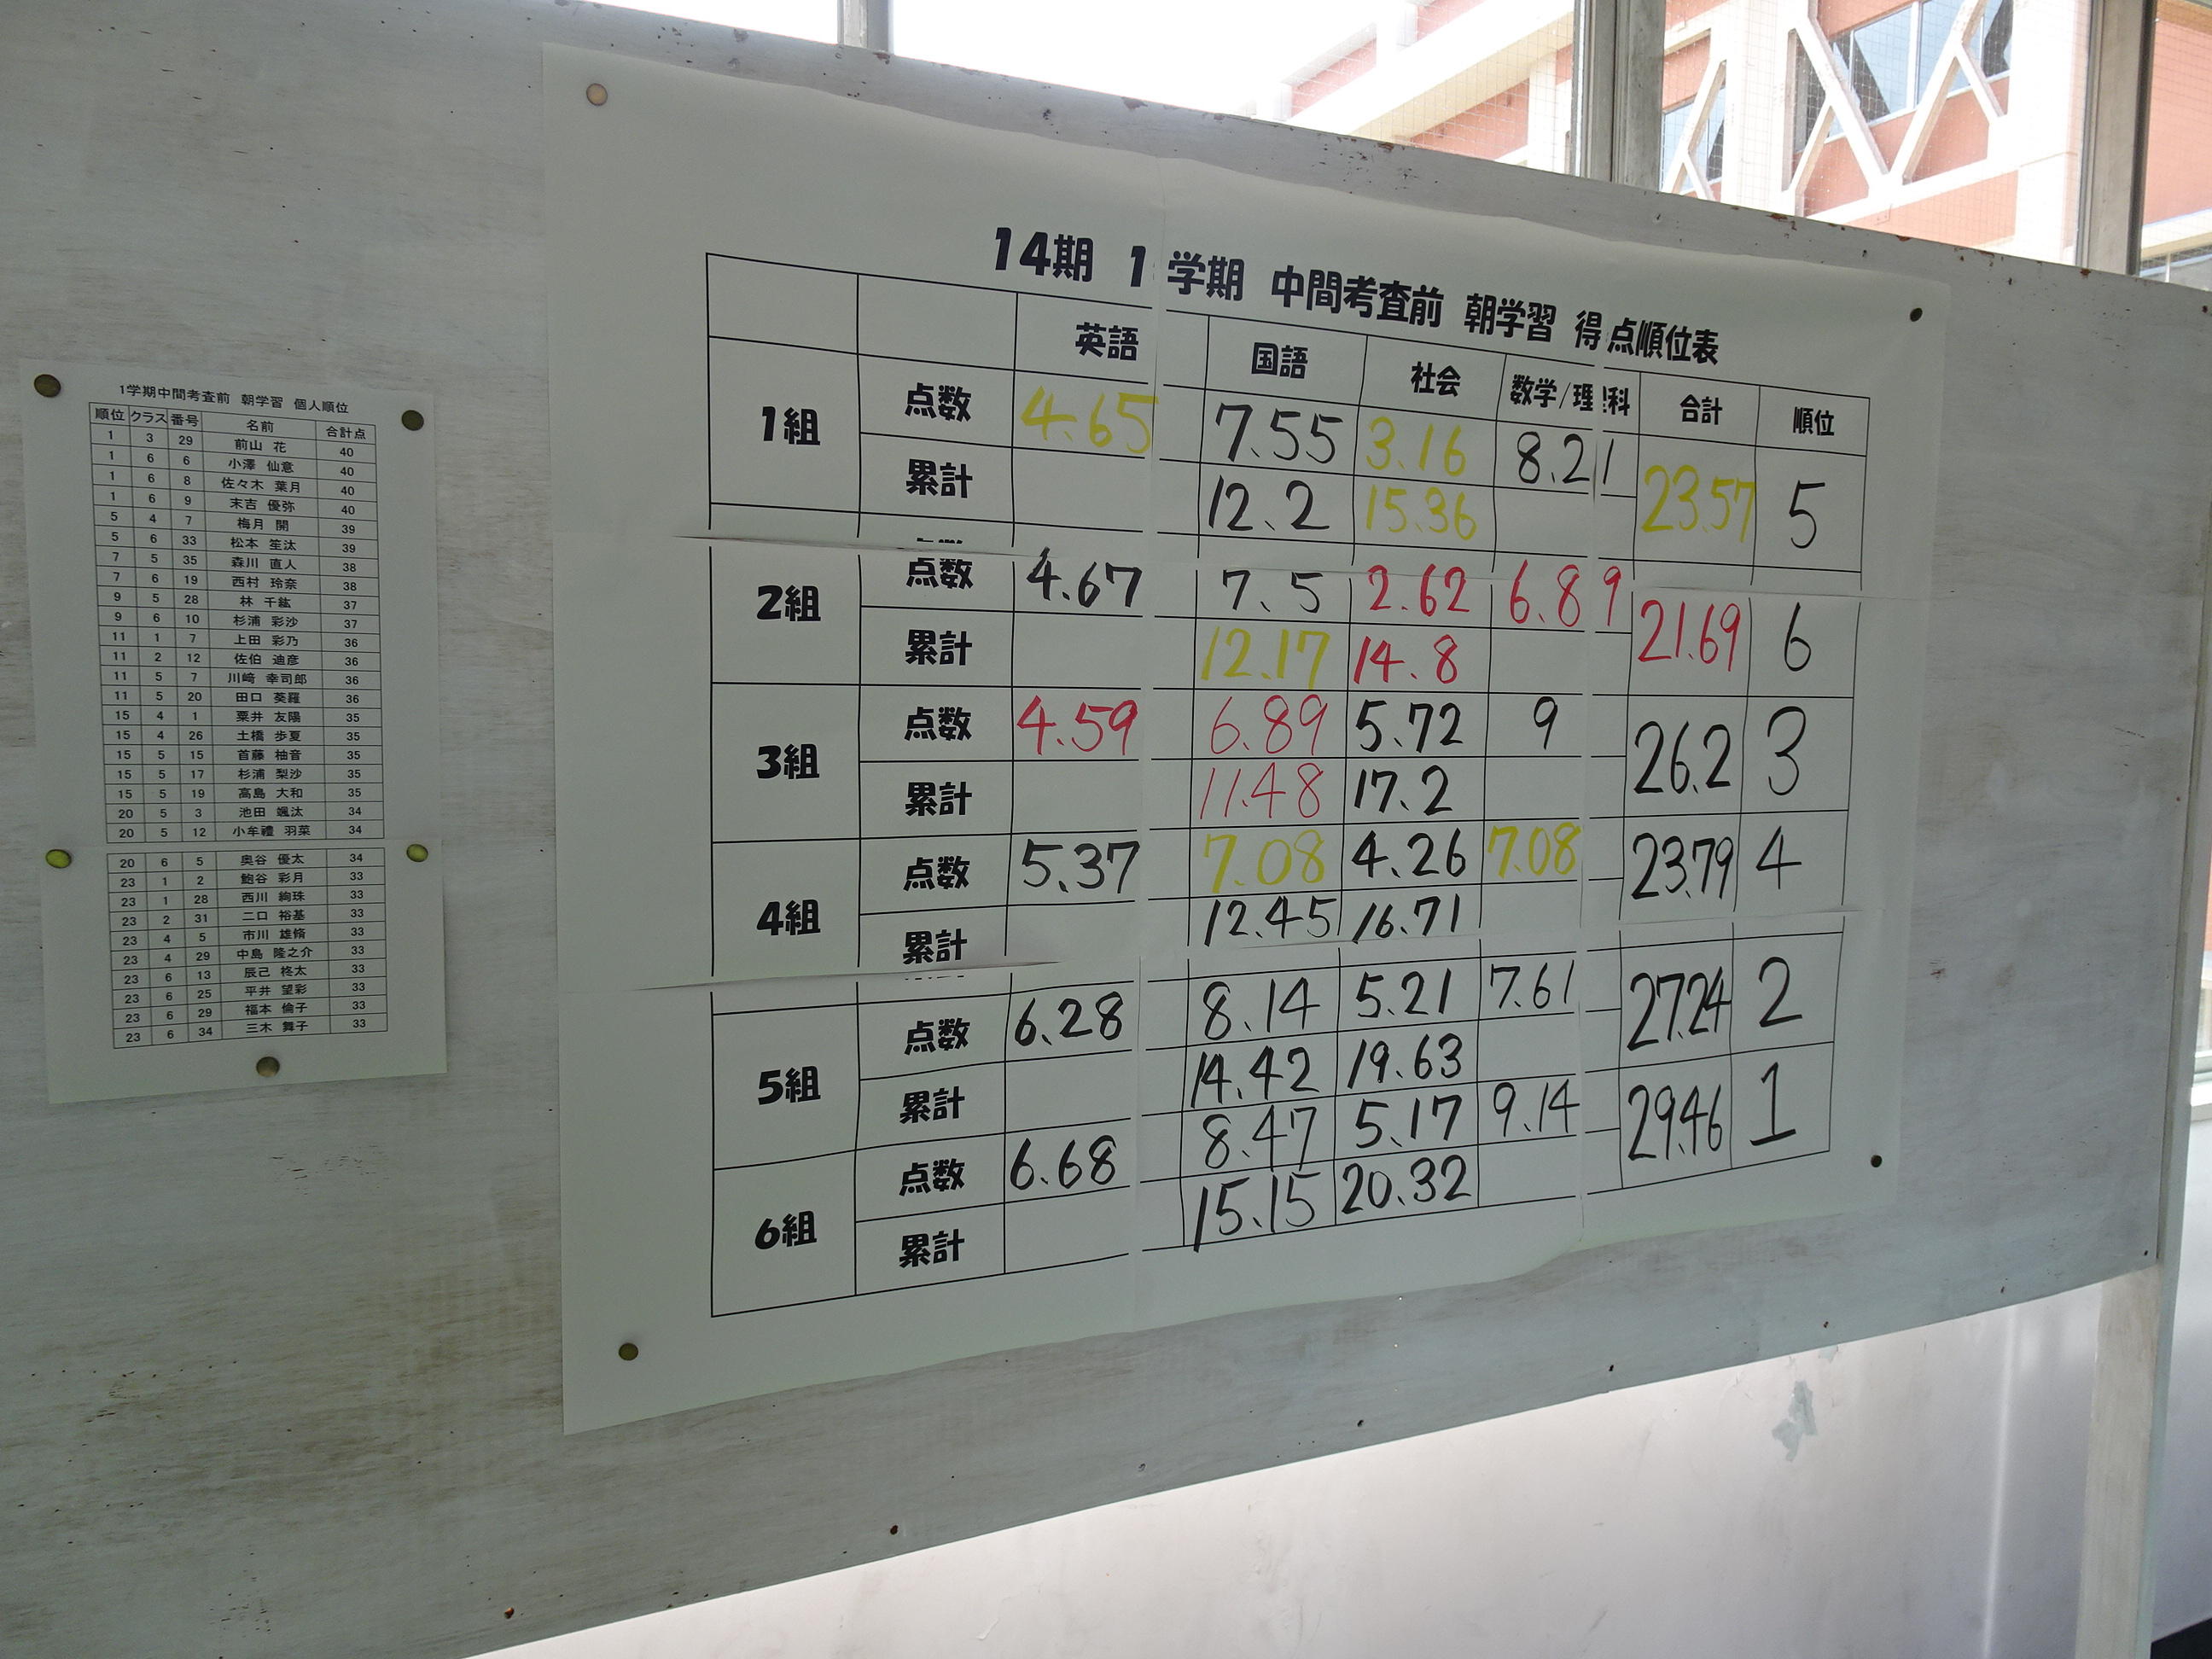 1学期中間考査前 朝学習 個人順位
順位 クラス 番号 名前 合計点
1 3 29 前山 花 40
1 6 6 小澤 仙意 40
1 6 8 佐々木 葉月 40
1 6 9 末吉 優弥 40
5 4 7 梅月 開 39
5 6 33 松本 笙汰 39
7 5 35 森川 直人 38
7 6 19 西村 玲奈 38
9 5 28 林 千紘 37
9 6 10 杉浦 彩沙 37
11 1 7 上田 彩乃 36
11 2 12 佐伯 迪彦 36
11 5 7 川﨑 幸司郎 36
11 5 20 田口 葵羅 36
15 4 1 粟井 友陽 35
15 4 26 土橋 歩夏 35
15 5 15 首藤 柚音 35
15 5 17 杉浦 梨沙 35
15 5 19 高島 大和 35
20 5 3 池田 颯汰 34
20 5 12 小牟禮 羽菜 34
20 6 5 奥谷 優太 34
23 1 2 鮑谷 彩月 33
23 1 28 西川 絢珠 33
23 2 31 二口 裕基 33
23 4 5 市川 雄脩 33
23 4 29 中島 隆之介 33
23 6 13 辰己 柊太 33
23 6 25 平井 望彩 33
23 6 29 福本 倫子 33
23 6 34 三木 舞子 33
14期 1学期 中間考査前 朝学習 得点順位表
英語 国語 社会 数学/理科 合計 順位
1組 点数 4.65 7.55 3.16 8.21 23.57 5
累計 12.2 15.36
2組 点数 4.67 7.5 2.62 6.89 21.69 6
累計 12.17 14.8
3組 点数 4.59 6.89 5.72 9 26.2 3
累計 11.48 17.2
4組 点数 5.37 7.08 4.26 7.08 23.79 4
累計 12.45 16.71
5組 点数 6.28 8.14 5.21 7.61 27.24 2
累計 14.42 19.63
6組 点数 6.68 8.47 5.17 9.14 29.46 1
累計 15.15 20.32